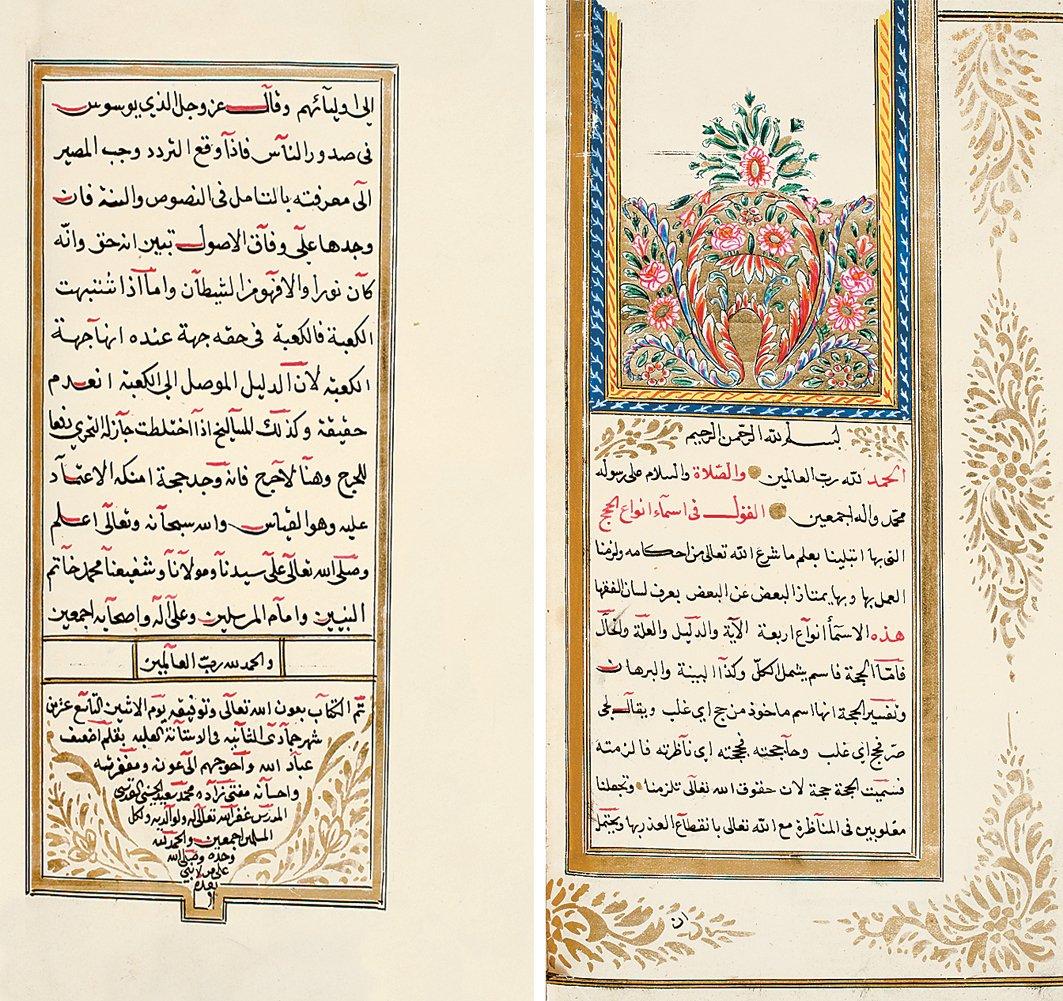 بسم الله الرحمن الرحيم
الحمد لله رب العالمين والصلاة والسلام على رسوله
محمد واله اجمعين القول في اسمآء انواع الحجج
التى بها ابتلينا بعلم ما شرع الله تعالى من احكامه ولزمنا
العمل بها وبها يمتاز البعض عن البعض يعرف لسان الفقها
هذه الاسمآ انواع اربعة الآية والدليل والعلة والحال
فامّا الحجة فاسم يشمل الكلّ وكذا البينة والبرهان
وتفسير الحجة انها اسم ماخوذ من حج اي غلب ويقال لجّ
فحج اي غلب وحاججته فحججته اي ناظرته فالزمته
فسميت الحجة حجة لان حقوق الله تعالى تلزمنا وتجعلنا
مغلوبين فى المناظرة مع الله تعالى بانقطاع العذر بها ويحتمل
ان
الى اوليآئهم وقال عز وجل الذي يوسوس
فى صدور الناس فاذا وقع التردد وجب المصير
الى معرفته بالتامل فى النصوص والسنة فان
وجدها على وفاق الاصول تبين انه حق وانّه
كان نورا والا فهو من الشيطان واما اذا اشتبهت
الكعبة فالكعبة فى حقه جهة عنده انها جهة
الكعبة لان الدليل الموصل الى الكعبة انعدم
حقيقة وكذلك للمساليخ اذا اختلطت جاز له التحري نفعا
للحرج وهنا لا حرج فانه وجد حجة امكنه الاعتماد
عليه وهو القياس والله سبحانه وتعالى اعلم
وصلى الله تعالى على سيدنا ومولانا وشفيعنا محمد خاتم
النبيين وامام المرسلين وعلى آله واصحابه اجمعين
والحمد لله رب العالمين
تم الكتاب بعون الله تعالى وتوفيقه يوم الاثنين التاسع عشر من
شهر جمادى الثانيه فى الاستانة العليه بقلم اضعف
عباد الله واحوجهم الى عون ومغفرته
واحسانه مفتى زاده محمد سعيد الحسنى القدسى
المدرس غفر الله تعالى له ولوالديه ولكل
المسلمين اجمعين والحمد لله
وحده وصلى الله
على من لا نبي
بعده